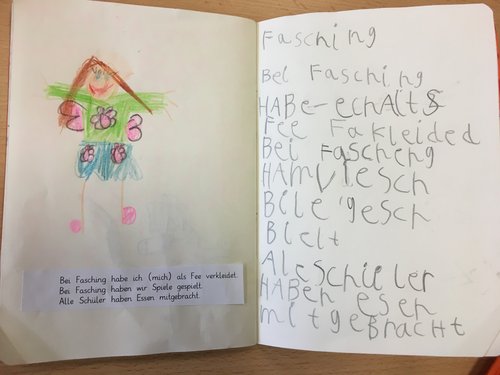 Bei Fasching habe ich (mich) als Fee verkleidet.
Bei Fasching haben wir Spiele gespielt.
Alle Schüler haben Essen mitgebracht.
Fasching
Bei Fasching
HABe-echAlts
Fee Fakleided
Bei FaSching
HAmViesch
Bile gesch
Bielt
Aleschüler
HABen esen
mitgeBracht